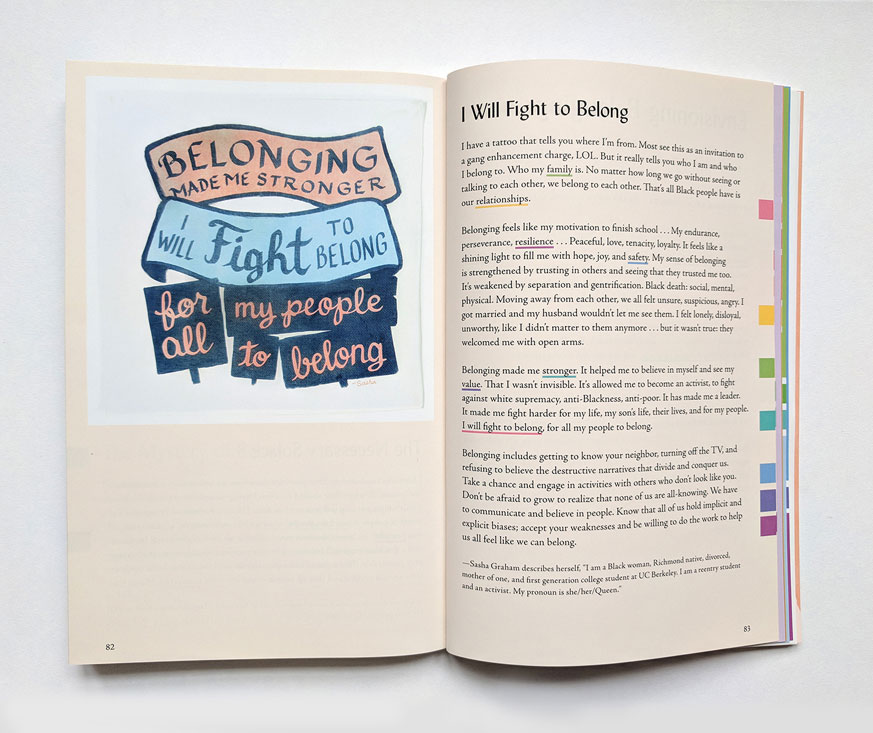 BELONGING
MADE ME STRONGER
I WILL Fight TO BELONG
for my people
all to belong
82
I Will Fight to Belong
I have a tattoo that tells you where I'm from. Most see this as an invitation to
a gang enhancement charge, LOL. But it really tells you who I am and who
I belong to. Who my family is. No matter how long we go without seeing or
talking to each other, we belong to each other. That's all Black people have is
our relationships.
Belonging feels like my motivation to finish school . . . My endurance,
perseverance, resilience . . . Peaceful, love, tenacity, loyalty. It feels like a
shining light to fill me with hope, joy, and safety. My sense of belonging
is strengthened by trusting in others and seeing that they trusted me too.
It's weakened by separation and gentrification. Black death: social, mental,
physical. Moving away from each other, we all felt unsure, suspicious, angry. I
got married and my husband wouldn't let me see them. I felt lonely, disloyal,
unworthy, like I didn't matter to them anymore . . . but it wasn't true: they
welcomed me with open arms.
Belonging made me stronger. It helped me to believe in myself and see my
value. That I wasn't invisible. It's allowed me to become an activist, to fight
against white supremacy, anti-Blackness, anti-poor. It has made me a leader.
It made me fight harder for my life, my son's life, their lives, and for my people.
I will fight to belong, for all my people to belong.
Belonging includes getting to know your neighbor, turning off the TV, and
refusing to believe the destructive narratives that divide and conquer us.
Take a chance and engage in activities with others who don't look like you.
Don't be afraid to grow to realize that none of us are all-knowing. We have
to communicate and believe in people. Know that all of us hold implicit and
explicit biases; accept your weaknesses and be willing to do the work to help
us all feel like we can belong.
—Sasha Graham describes herself, "I am a Black woman, Richmond native, divorced,
mother of one, and first generation college student at UC Berkeley. I am a reentry student
and an activist. My pronoun is she/her/Queen."
83